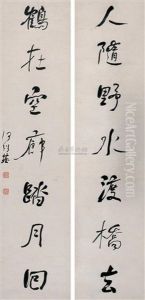 人隨野水渡橋去
鶴在空廊踏月回
何紹基